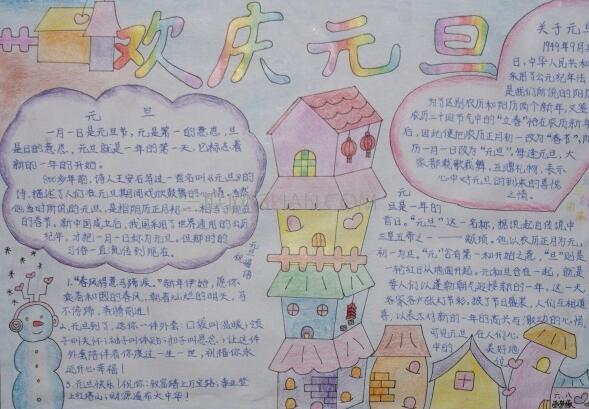 欢庆元旦
元 旦
一月一日是元旦节，元是第一的意思，旦
是日的意思，元旦就是一年的第一天，它标志着
新的一年的开始。
900多年前，诗人王安石写过一首名叫《元旦》的
诗，描述了人们在元旦期间
他当时所说的元旦，是指阴历正月初一，相当于现在
的春节。新中国成立后，我国采用了世界通用的公历
纪年，才把一月一日称为元旦。但那时的
习俗一直流传到现在。
元旦祝福语
1."春风得意马蹄疾。"新年伊始，愿你
乘着和煦的春风，朝着灿烂的明天，马
不停蹄，奔腾前进！
2.元旦到了，送你一件外套：口袋叫温暖；领
子叫关怀；袖子叫体贴；扣子叫思念；让这件
外套陪伴着你渡过一生一世，祝福你永
远开心幸福！
3.元旦快乐！祝你：致富踏上万宝路；事业登
上红塔山；财源遍布大中华！
关于元旦
1949年9月2
日，中华人民共和
采用了公元纪年法
是我们所说的阳历
为了区别农历和阳历两个新年，又鉴
农历二十四节气中的"立春"恰在农历新年
后，因此便把农历正月初一改为"春节"，阳
历一月一日改为"元旦"。每逢元旦，大
家都载歌载舞，互赠礼物，表示
心中对元旦的到来的喜悦
之情。
元
旦是一年的
首日。"元旦"这一名称，据说起自传说中
三皇五帝之一 颛顼，他以农历正月为元，
初一为旦。"元"含有第一和开始之意，"旦"则是
一轮红日从地面升起，元和旦合在一起，就是
要人们以蓬勃朝气迎接新的一年，这一天，
各家各户张灯结彩，披了节日盛装，人们互相道
喜，以表达对新的一年的高兴与激动的心情，
可见元旦 在人们心
中的 美好地
位。
六.八